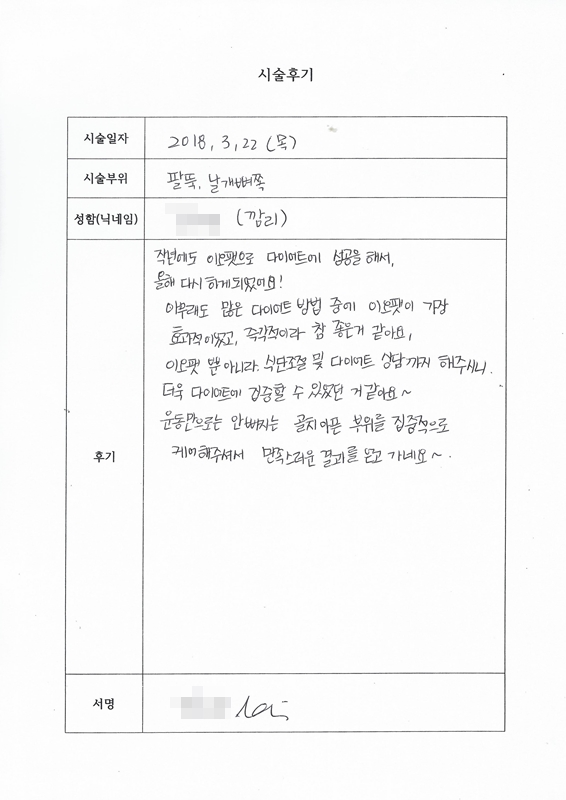 시술후기
시술일자 2018, 3, 22 (목)
시술부위 팔뚝, 날개뼈쪽
성함(닉네임) (깜리)
작년에도 이요팻으로 다이어트에 성공을 해서,
올해 다시 하게되었어요!
아무래도 많은 다이어트 방법 중에 이요팻이 가장
효과적이었고, 즉각적이라 참 좋은거 같아요,
이요팻 뿐 아니라. 식단조절 및 다이어트 상담까지 해주시니.
더욱 다이어트에 집중할 수 있었던 거 같아요~
운동만으로는 안빠지는 골치아픈 부위를 집중적으로
후기 케어해주셔서 만족스러운 결과를 얻고 가네요~.
서명